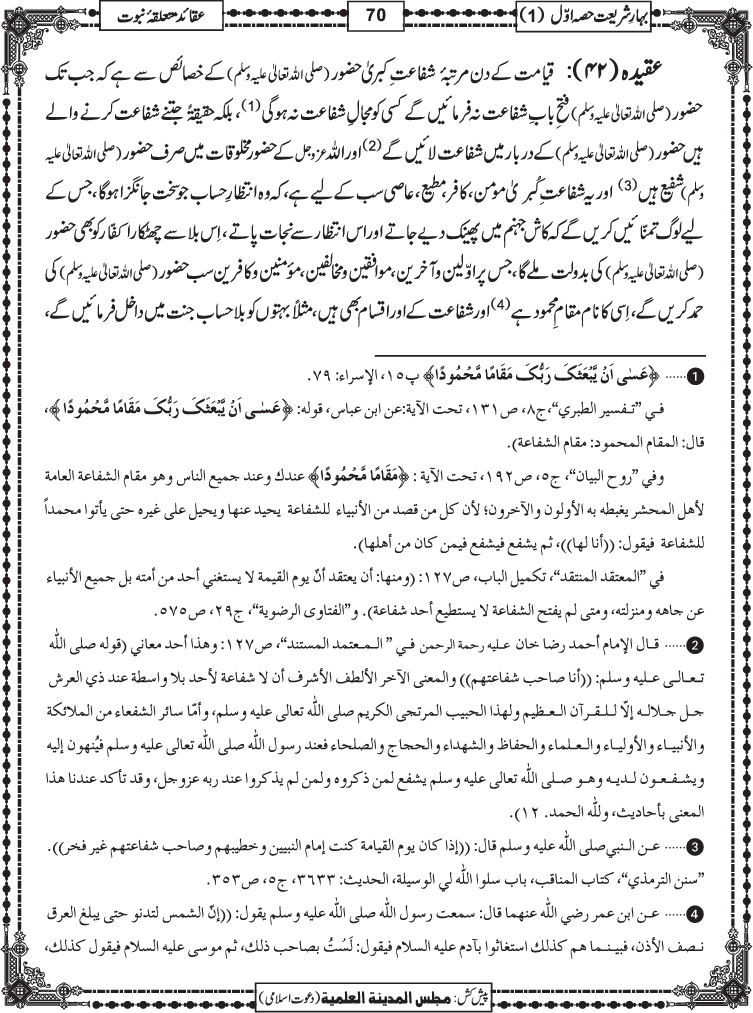 بہارِشریعت حصہ اوّل (1)
70
عقائد متعلقۂ نبوت
عقیدہ (۴۲): قیامت کے دن مرتبۂ شفاعتِ کبریٰ حضور (صلی اللہ تعالیٰ علیہ وسلم) کے خصائص سے ہے کہ جب تک
حضور (صلی اللہ تعالیٰ علیہ وسلم) فتحِ بابِ شفاعت نہ فرمائیں گے کسی کو مجالِ شفاعت نہ ہوگی (1)، بلکہ حقیقۃً جتنے شفاعت کرنے والے
ہیں حضور (صلی اللہ تعالیٰ علیہ وسلم) کے دربار میں شفاعت لائیں گے (2) اور اللہ عزوجل کے حضور مخلوقات میں صرف حضور (صلی اللہ تعالیٰ علیہ
وسلم) شفیع ہیں (3) اور یہ شفاعتِ کُبریٰ مؤمن، کافر، مطیع، عاصی سب کے لیے ہے، کہ وہ انتظارِ حساب جو سخت جانگزا ہوگا، جس کے
لیے لوگ تمنّائیں کریں گے کہ کاش جہنم میں پھینک دیے جاتے اور اس انتظار سے نجات پاتے، اِس بلا سے چھٹکارا کفّار کو بھی حضور
(صلی اللہ تعالیٰ علیہ وسلم) کی بدولت ملے گا، جس پر اوّلین و آخرین، موافقین و مخالفین، مؤمنین و کافرین سب حضور (صلی اللہ تعالیٰ علیہ وسلم) کی
حمد کریں گے، اِسی کا نام مقامِ محمود ہے (4) اور شفاعت کے اور اقسام بھی ہیں، مثلاً بہتوں کو بلا حساب جنت میں داخل فرمائیں گے،
1 ...... ﴿عَسٰی اَنْ یَّبْعَثَکَ رَبُّکَ مَقَامًا مَّحْمُوْدًا﴾ پ١٥، الإسراء: ٧٩.
في ”تفسير الطبري“، ج٨، ص١٣١، تحت الآية: عن ابن عباس، قوله: ﴿عَسٰی اَنْ یَّبْعَثَکَ رَبُّکَ مَقَامًا مَّحْمُوْدًا﴾،
قال: المقام المحمود: مقام الشفاعة).
وفي ”روح البيان“، ج٥، ص١٩٢، تحت الآية: ﴿مَقَامًا مَّحْمُوْدًا﴾ عندك وعند جميع الناس وهو مقام الشفاعة العامة
لأهل المحشر يغبطه به الأولون والآخرون؛ لأن كل من قصد من الأنبياء للشفاعة يحيد عنها ويحيل على غيره حتى يأتوا محمداً
للشفاعة فيقول: ((أنا لها))، ثم يشفع فيشفع فيمن كان من أهلها).
في ”المعتقد المنتقد“، تكميل الباب، ص١٢٧: (ومنها: أن يعتقد أنّ يوم القيمة لا يستغني أحد من أمته بل جميع الأنبياء
عن جاهه ومنزلته، ومتى لم يفتح الشفاعة لا يستطيع أحد شفاعة). و”الفتاوى الرضوية“، ج٢٩، ص٥٧٥.
2 ...... قال الإمام أحمد رضا خان عليه رحمة الرحمن في ”المعتمد المستند“، ص١٢٧: وهذا أحد معاني (قوله صلى الله
تعالى عليه وسلم: ((أنا صاحب شفاعتهم)) والمعنى الآخر الألطف الأشرف أن لا شفاعة لأحد بلا واسطة عند ذي العرش
جل جلاله إلّا للقرآن العظيم ولهذا الحبيب المرتجى الكريم صلى الله تعالى عليه وسلم، وأمّا سائر الشفعاء من الملائكة
والأنبياء والأولياء والعلماء والحفاظ والشهداء والحجاج والصلحاء فعند رسول الله صلى الله تعالى عليه وسلم فيُنهون إليه
ويشفعون لديه وهو صلى الله تعالى عليه وسلم يشفع لمن ذكروه ولمن لم يذكروا عند ربه عزوجل، وقد تأكد عندنا هذا
المعنى بأحاديث، ولله الحمد. ١٢).
3 ...... عن النبي صلى الله عليه وسلم قال: ((إذا كان يوم القيامة كنت إمام النبيين وخطيبهم وصاحب شفاعتهم غير فخر)).
”سنن الترمذي“، كتاب المناقب، باب سلوا الله لي الوسيلة، الحديث: ٣٦٣٣، ج٥، ص٣٥٣.
4 ...... عن ابن عمر رضي الله عنهما قال: سمعت رسول الله صلى الله عليه وسلم يقول: ((إنّ الشمس لتدنو حتى يبلغ العرق
نصف الأذن، فبينما هم كذلك استغاثوا بآدم عليه السلام فيقول: لَسْتُ بصاحب ذلك، ثم موسى عليه السلام فيقول كذلك،
پیش کش: مجلس المدینۃ العلمیۃ (دعوت اسلامی)